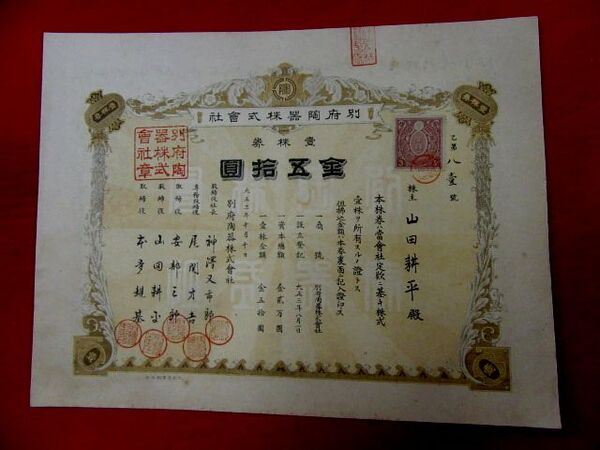 別府陶器株式會社
壹株券
金五拾圓
乙第八壹號
株主 山田耕平殿
本株券ハ當會社定款ニ基キ株式
壹株ヲ所有スルノ證トス
一商號 別府陶器株式會社
一設立登記 大正三年八月一日
一資本總額 金貳万圓
一壹株金額 金五拾圓
大正三年十月十日
別府陶器株式會社
取締役社長 神澤又市郎
專務取締役 尾関才吉
取締役 安部三郎
取締役 山田耕平
取締役 本多規基
別府陶
器株式
會社章